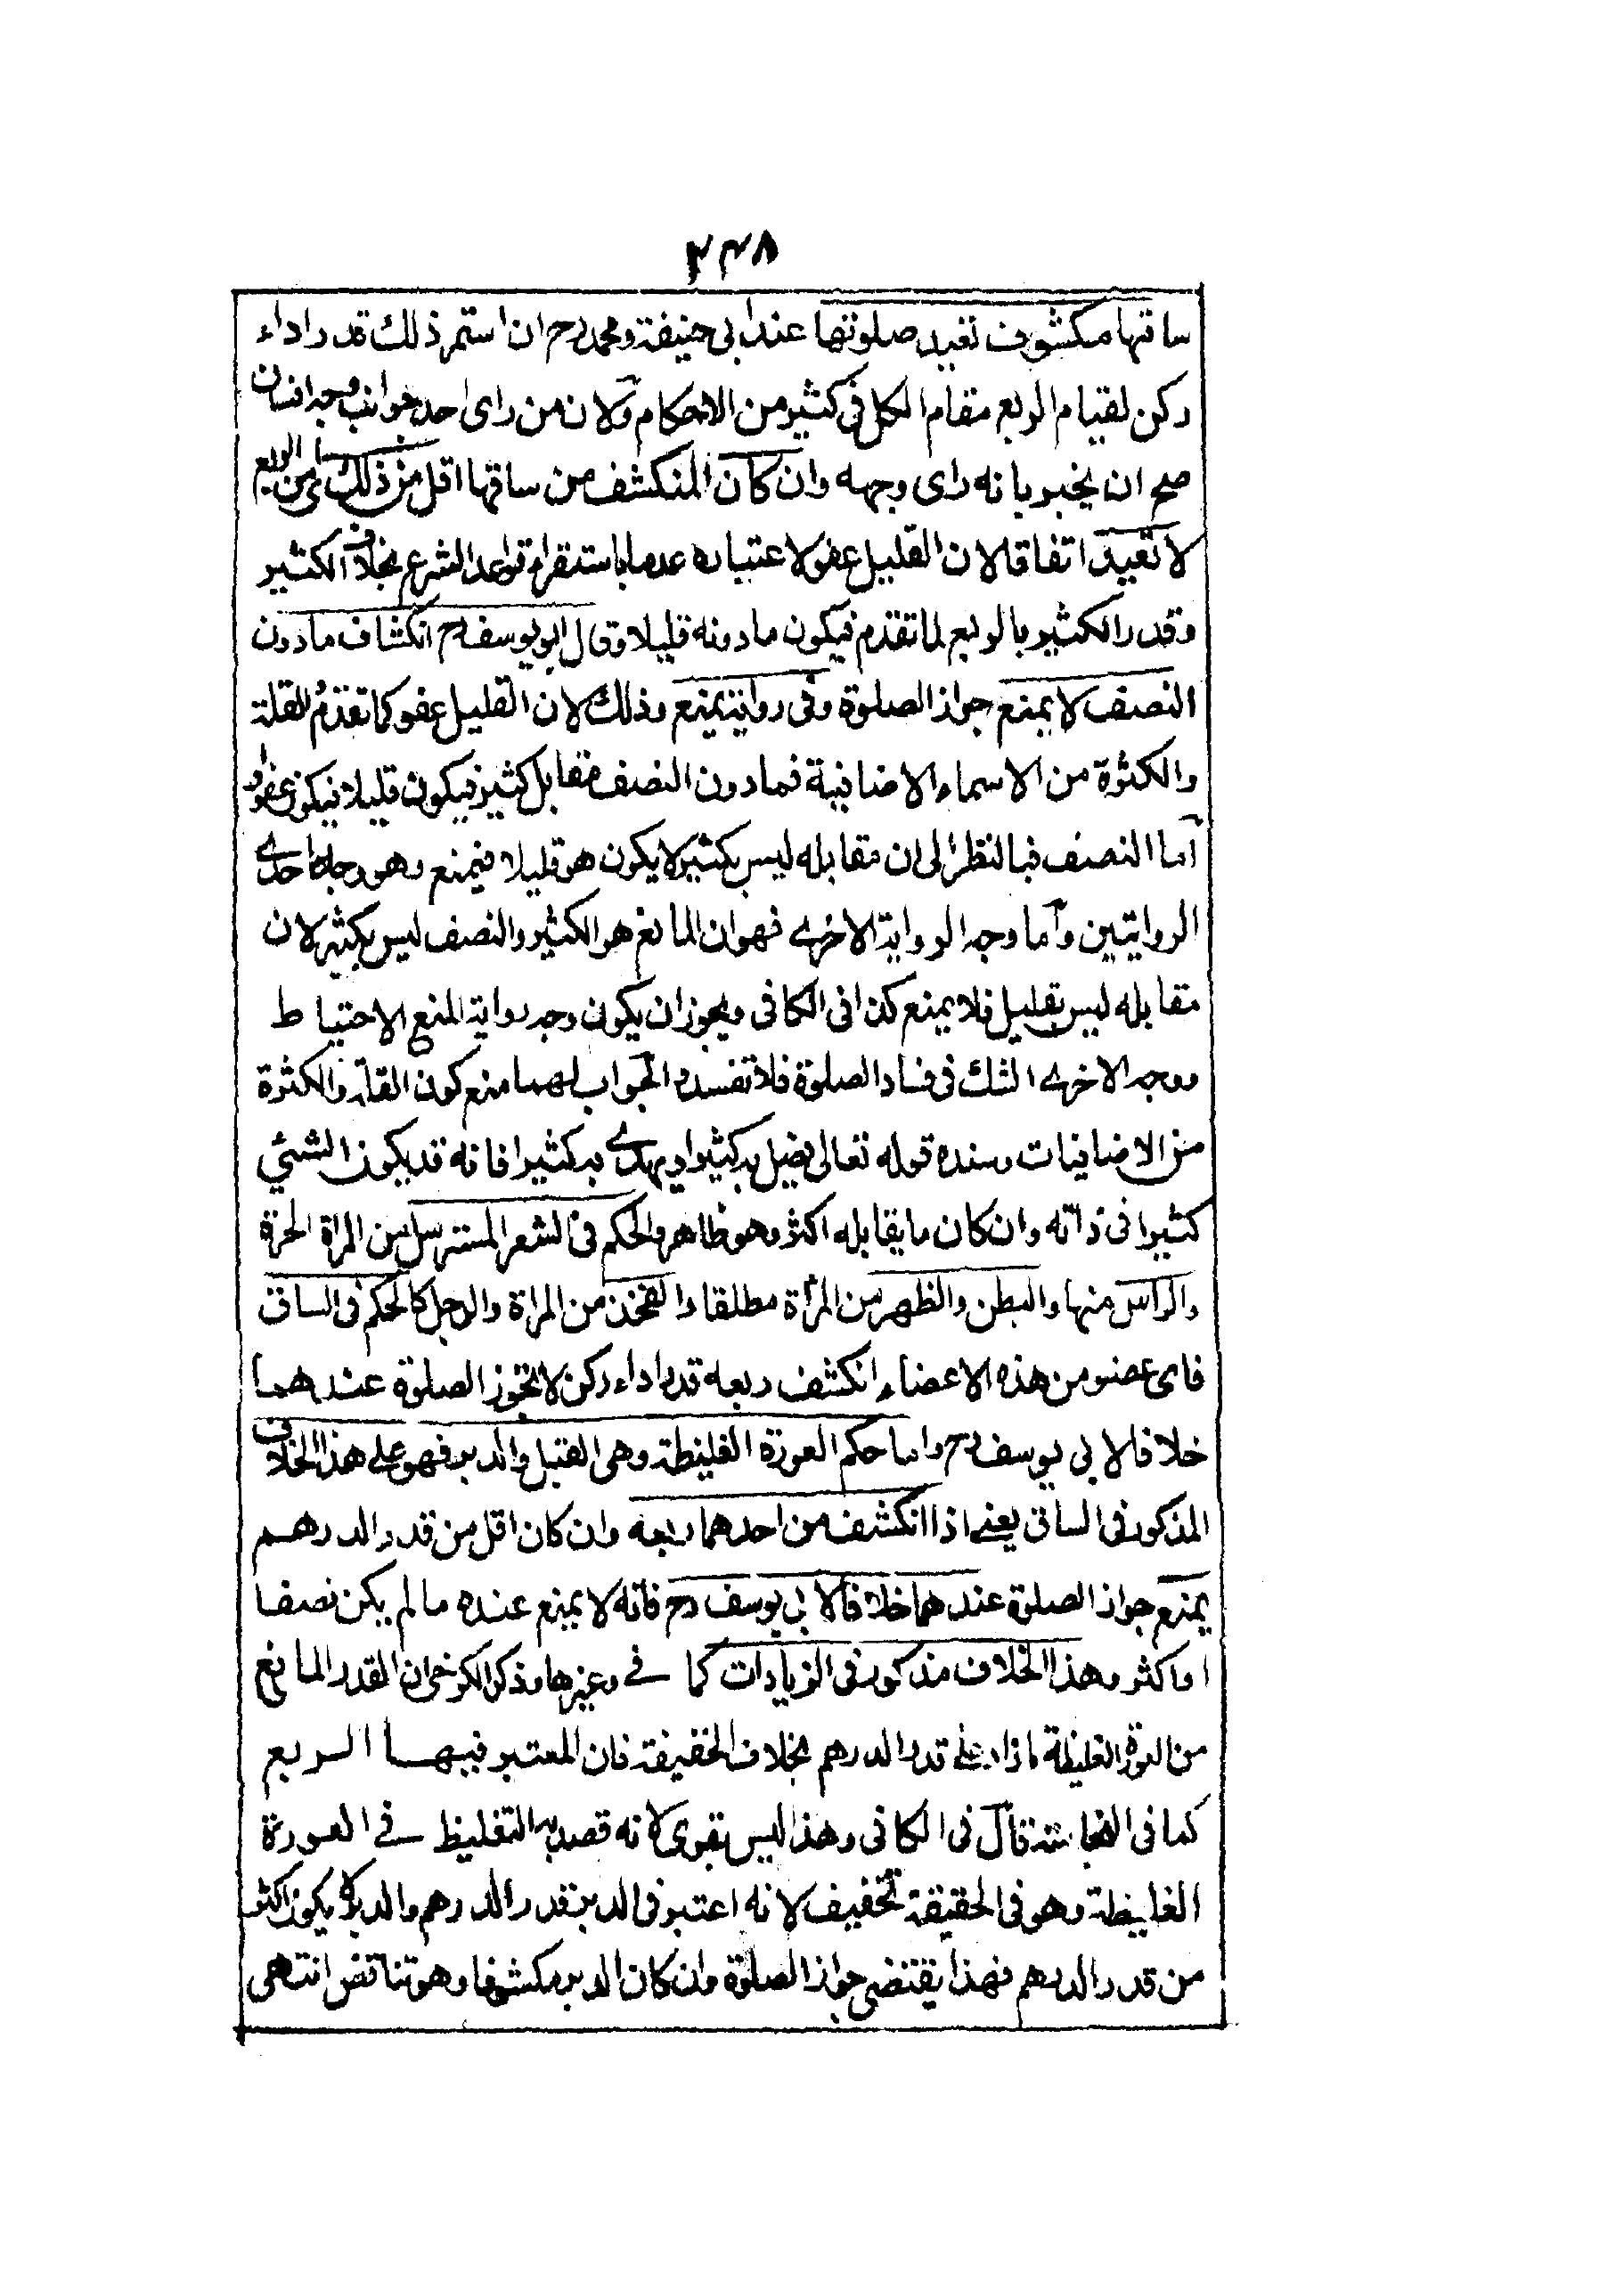 ۲۴۸
ساقها مكشوف تعيد صلوتها عند ابى حنيفة ومحمد رح ان استمر ذلك قدر اداء
ركن لقيام الربع مقام الكل فى كثير من الاحكام ولان من راى احد جوانب وجه انسان
صح ان يخبر بانه راى وجهه وان كان المنكشف من ساقها اقل من ذلك اى من الربع
لا تعيد اتفاقا لان القليل عفو لاعتباره عدما باستقراء قواعد الشرع بخلاف الكثير
وقدر الكثير بالربع لما تقدم فيكون ما دونه قليلا وقال ابو يوسف رح انكشاف ما دون
النصف لا يمنع جواز الصلوة وفى رواية يمنع وذلك لان القليل عفو كما تقدم والقلة
والكثرة من الاسماء الاضافية فما دون النصف مقابل كثير فيكون قليلا فيكون عفوا و
اما النصف فبالنظر الى ان مقابله ليس بكثير لا يكون هو قليلا فيمنع وهو وجه احدے
الروايتين واما وجه الرواية الاخرے فهو ان المانع هو الكثير والنصف ليس بكثير لان
مقابله ليس بقليل فلا يمنع كذا فى الكافى ويجوز ان يكون وجه رواية المنع الاحتياط
ووجه الاخرے الشك فى فساد الصلوة فلا تفسد والجواب لهما منع كون القلة والكثرة
من الاضافيات وسنده قوله تعالى يضل به كثيرا ويهدے به كثيرا فانه قد يكون الشئي
كثيرا فى ذاته وان كان ما يقابله اكثر وهو ظاهر والحكم فى الشعر المسترسل من المراة الحرة
والراس منها والبطن والظهر من المرأة مطلقا والفخذ من المراة والرجل كالحكم فى الساق
فاى عضو من هذه الاعضاء انكشف ربعه قدر اداء ركن لا تجوز الصلوة عندهما
خلافا لابى يوسف رح واما حكم العورة الغليظة وهى القبل والدبر فهو على هذا الخلاف
المذكور فى الساق يعنے اذا انكشف من احدهما ربعه وان كان اقل من قدر الدرهم
يمنع جواز الصلوة عندهما خلافا لابى يوسف رح فانه لا يمنع عنده ما لم يكن نصفا
او اكثر وهذا الخلاف مذكور فى الزيادات كما فے وغيرها وذكر الكرخى ان القدر المانع
من العورة الغليظة ما زاد على قدر الدرهم بخلاف الخفيفة فان المعتبر فيها الربع
كما فى النجاسة قال فى الكافى وهذا ليس بقوى لانه قصد به التغليظ فے العورة
الغليظة وهو فى الحقيقة تخفيف لانه اعتبر فى الدبر قدر الدرهم والدبر لا يكون اكثر
من قدر الدرهم فهذا يقتضى جواز الصلوة وان كان الدبر مكشوفا وهو تناقض انتهى